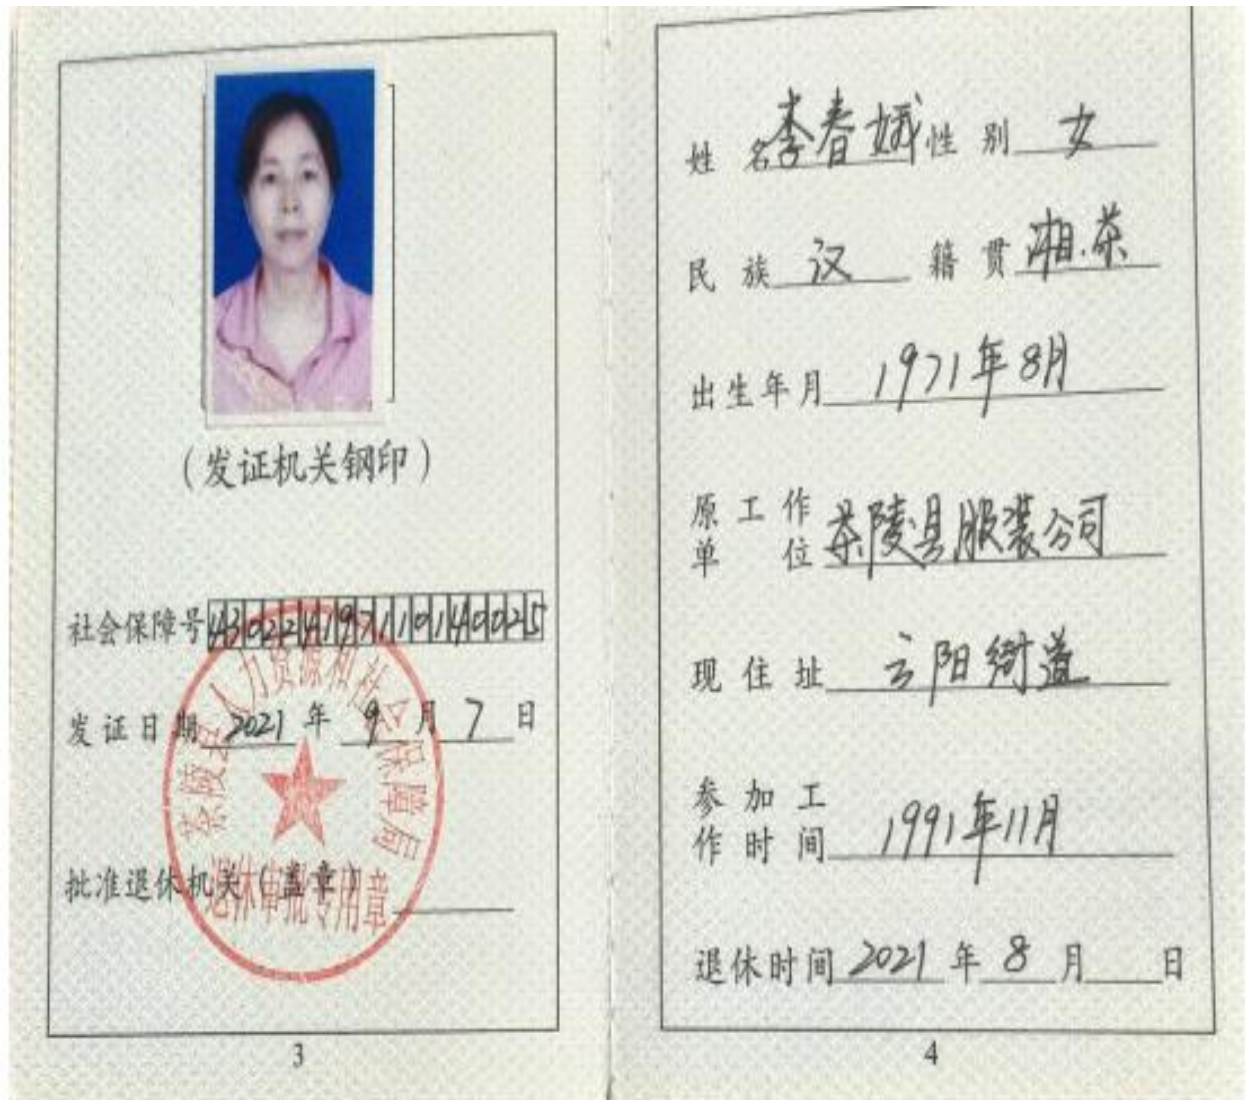 (发证机关钢印)
社会保障号 430224197110140025
发证日期 2021 年 9 月 7 日
批准退休机关(盖章)
茶陵县人力资源和社会保障局
退休审批专用章
3
姓名 李春娥 性别 女
民族 汉 籍贯 湘.茶
出生年月 1971年8月
原工作单位 茶陵县服装公司
现住址 云阳街道
参加工作时间 1991年11月
退休时间 2021 年 8 月 日
4